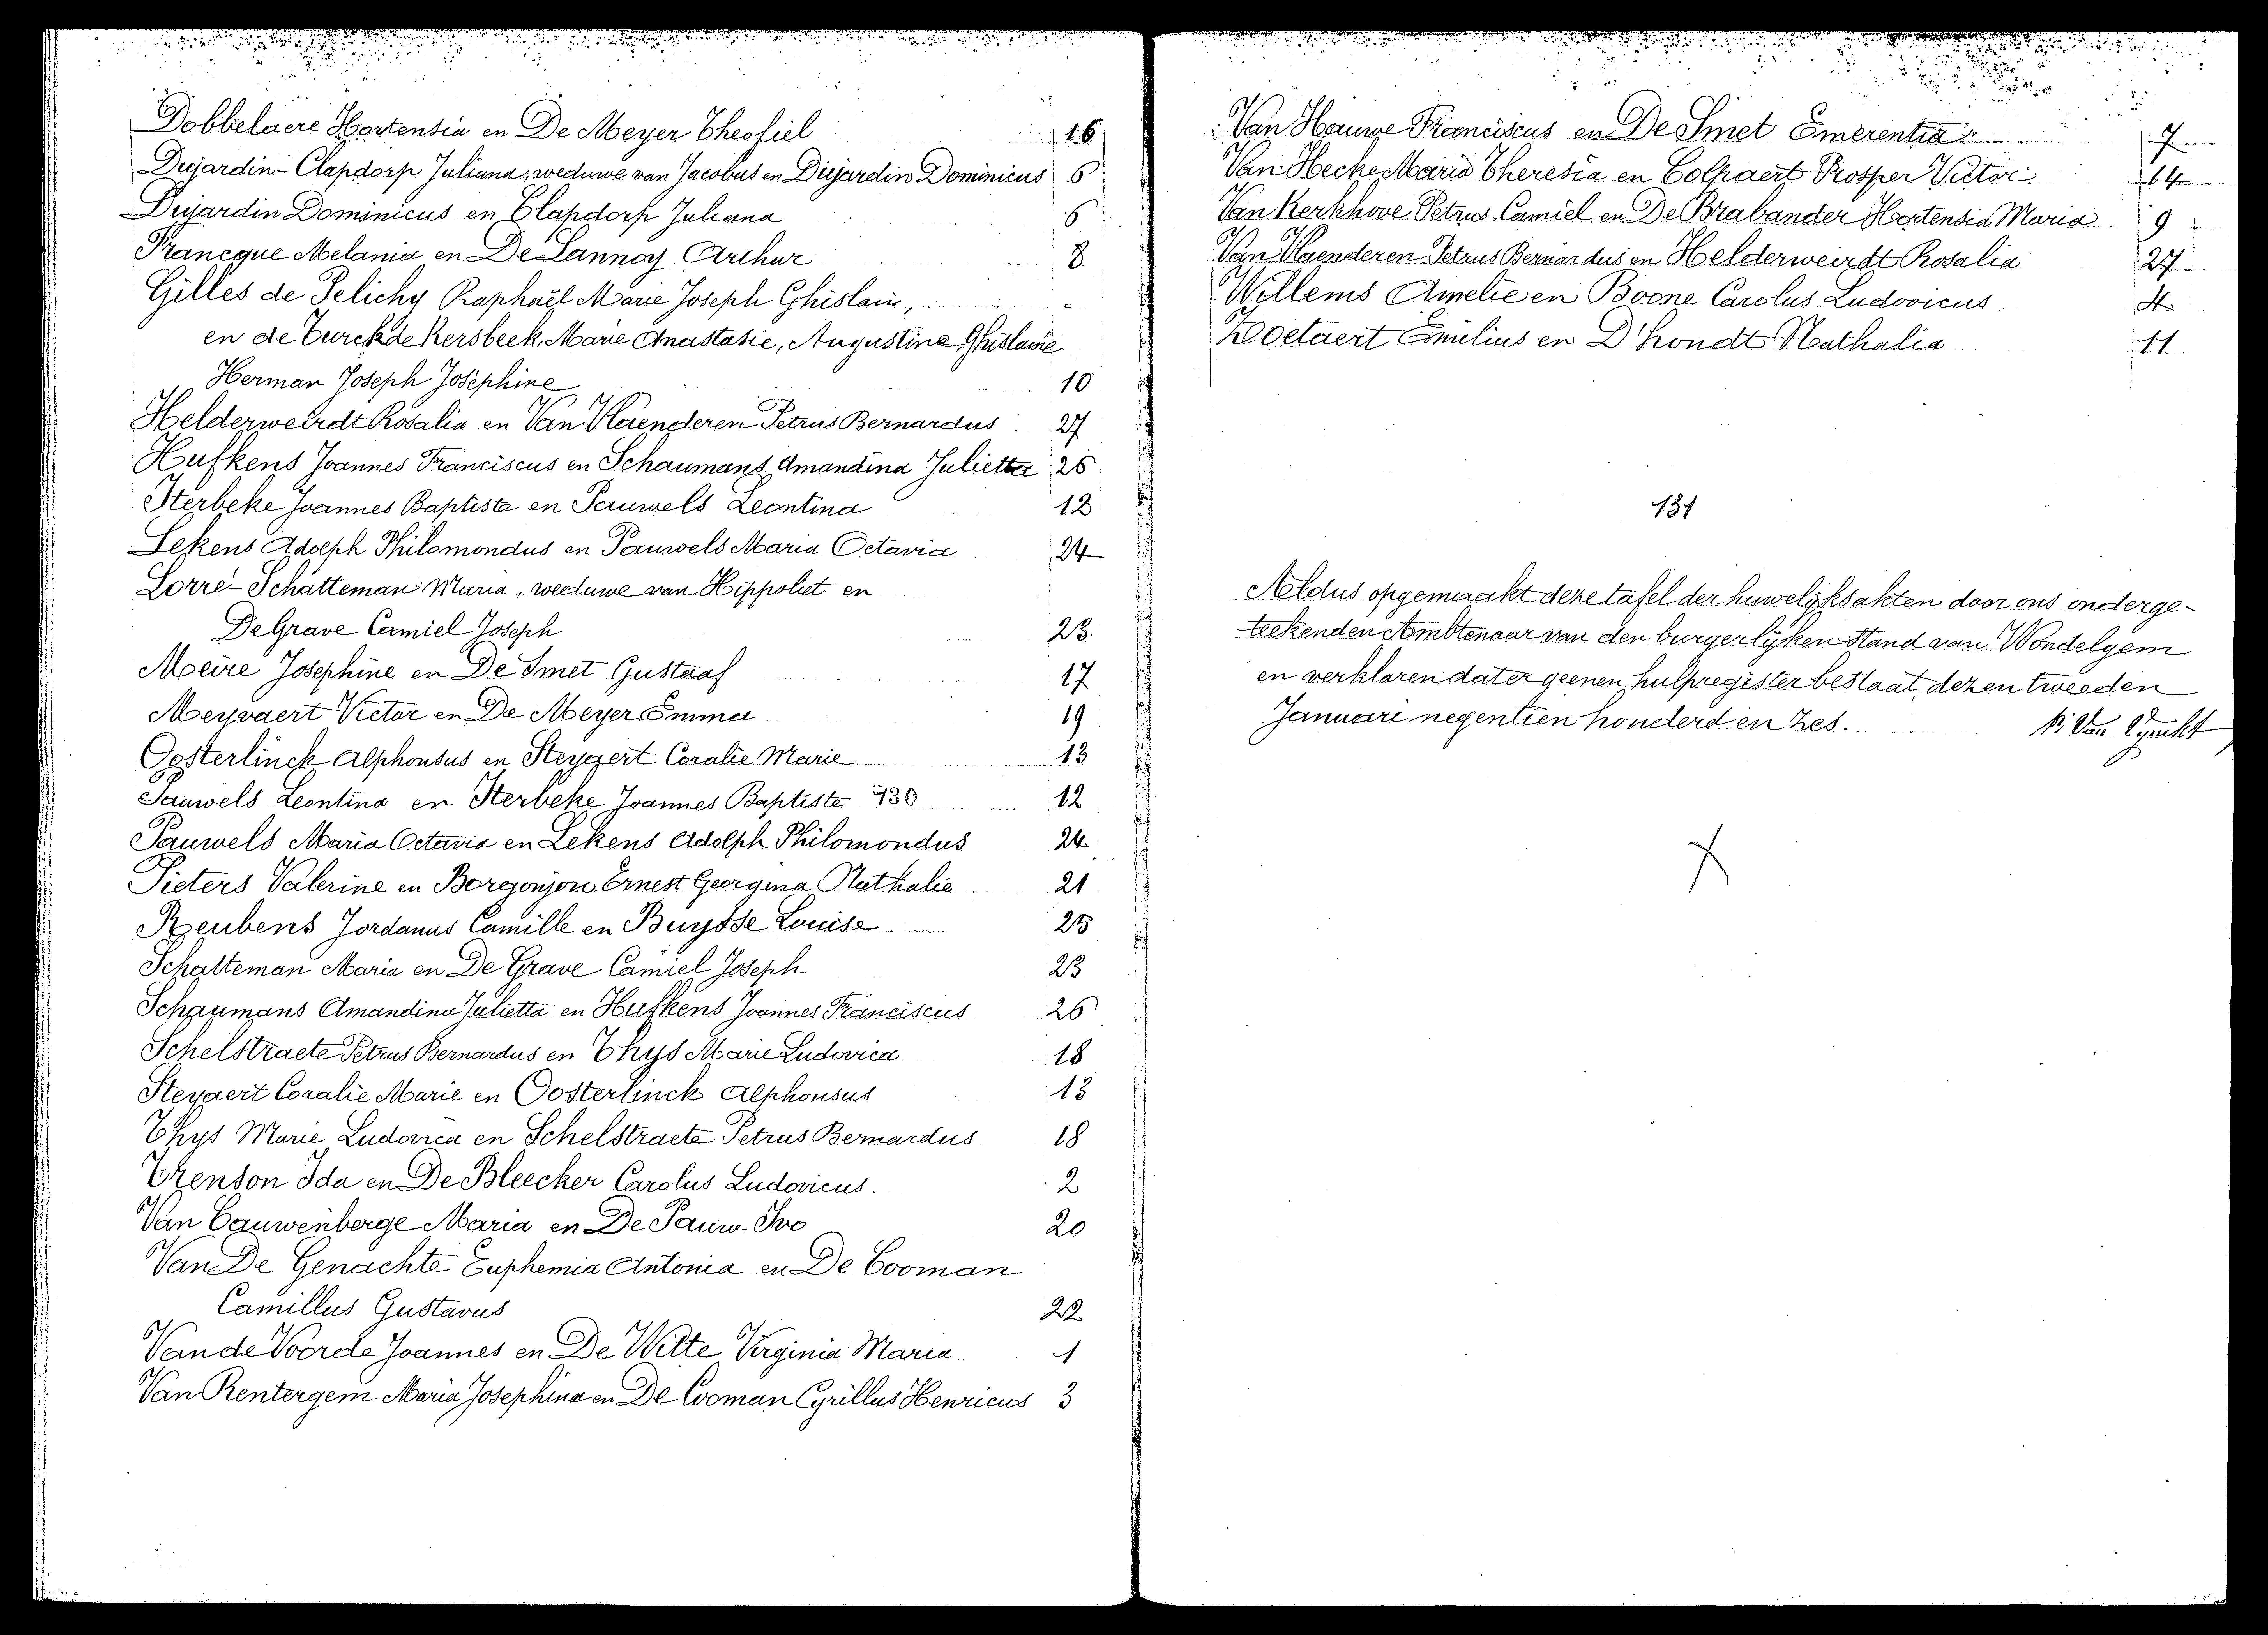 Dobbelaere Hortensia en De Meyer Theofiel 16
Dujardin-Clapdorp Juliana, weduwe van Jacobus en Dujardin Dominicus 6
Dujardin Dominicus en Clapdorp Juliana 6
Francque Melania en De Lannoy Arthur 8
Gilles de Pelichy Raphaël Marie Joseph Ghislain,
en de Turck de Kersbeek, Marie Anastasie, Augustine Ghislaine
Herman Joseph Joséphine 10
Helderweirdt Rosalia en Van Vlaenderen Petrus Bernardus 27
Hufkens Joannes Franciscus en Schaumans Amandina Julietta 26
Sterbeke Joannes Baptiste en Pauwels Leontina 12
Lekens Adolph Philomondus en Pauwels Maria Octavia 24
Lorré-Schatteman Maria, weduwe van Hippoliet en
De Grave Camiel Joseph 23
Meire Josephine en De Smet Gustaaf 17
Meyvaert Victor en De Meyer Emma 19
Oosterlinck Alphonsus en Steyaert Coralie Marie 13
Pauwels Leontina en Sterbeke Joannes Baptiste 130 12
Pauwels Maria Octavia en Lekens Adolph Philomondus 24
Pieters Valerine en Borgonjon Ernest Georgina Nathalie 21
Reubens Jordanus Camille en Buysse Louise 25
Schatteman Maria en De Grave Camiel Joseph 23
Schaumans Amandina Julietta en Hufkens Joannes Franciscus 26
Schelstraete Petrus Bernardus en Thys Marie Ludovica 18
Steyaert Coralie Marie en Oosterlinck Alphonsus 13
Thys Marie Ludovica en Schelstraete Petrus Bernardus 18
Trenson Ida en De Bleecker Carolus Ludovicus. 2
Van Cauwenberge Maria en De Pauw Ivo 20
Van De Genachte Euphemia Antonia en De Cooman
Camillus Gustavus 22
Van de Voorde Joannes en De Witte Virginia Maria 1
Van Rentergem Maria Josephina en De Cooman Cyrillus Henricus 3
Van Hauwe Franciscus en De Smet Emerentia 7
Van Hecke Maria Theresia en Colpaert Prosper Victor 14
Van Kerkhove Petrus Camiel en De Brabander Hortensia Maria 9
Van Vlaenderen Petrus Bernardus en Helderweirdt Rosalia 27
Willems Amelie en Boone Carolus Ludovicus. 4
Zoetaert Emilius en D'hondt Nathalia 11
131
Aldus opgemaakt deze tafel der huwelijksakten door ons onderge-
teekenden Ambtenaar van den burgerlyken Stand van Wondelgem
en verklaren dat er geenen hulpregister bestaat, dezen tweeden
Januari negentien honderd en zes.